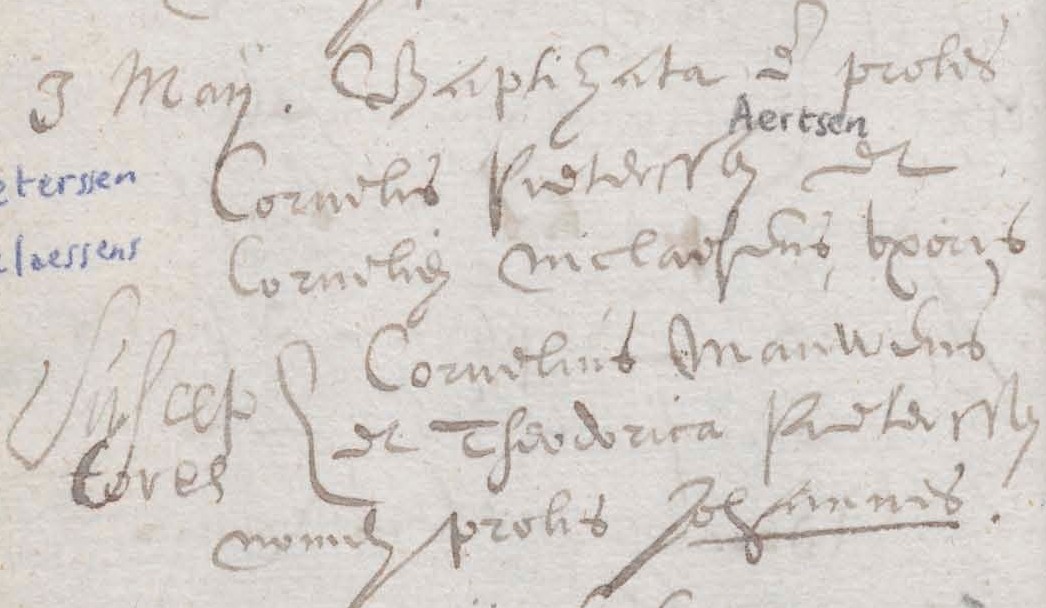 3 Maij. Baptizata e proles
Aertsen
eterssen
Cornelis Pieterssen et
claessens
Corneliæ Niclaessens uxoris
Suscep
Cornelius Mauwens
tores
et Theodorica Pieterssen
nomen prolis Johannes.